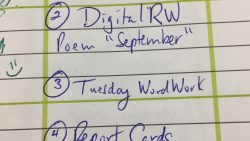 ② Digital RW
Poem "September"
③ Tuesday WordWork
④ Report Cards